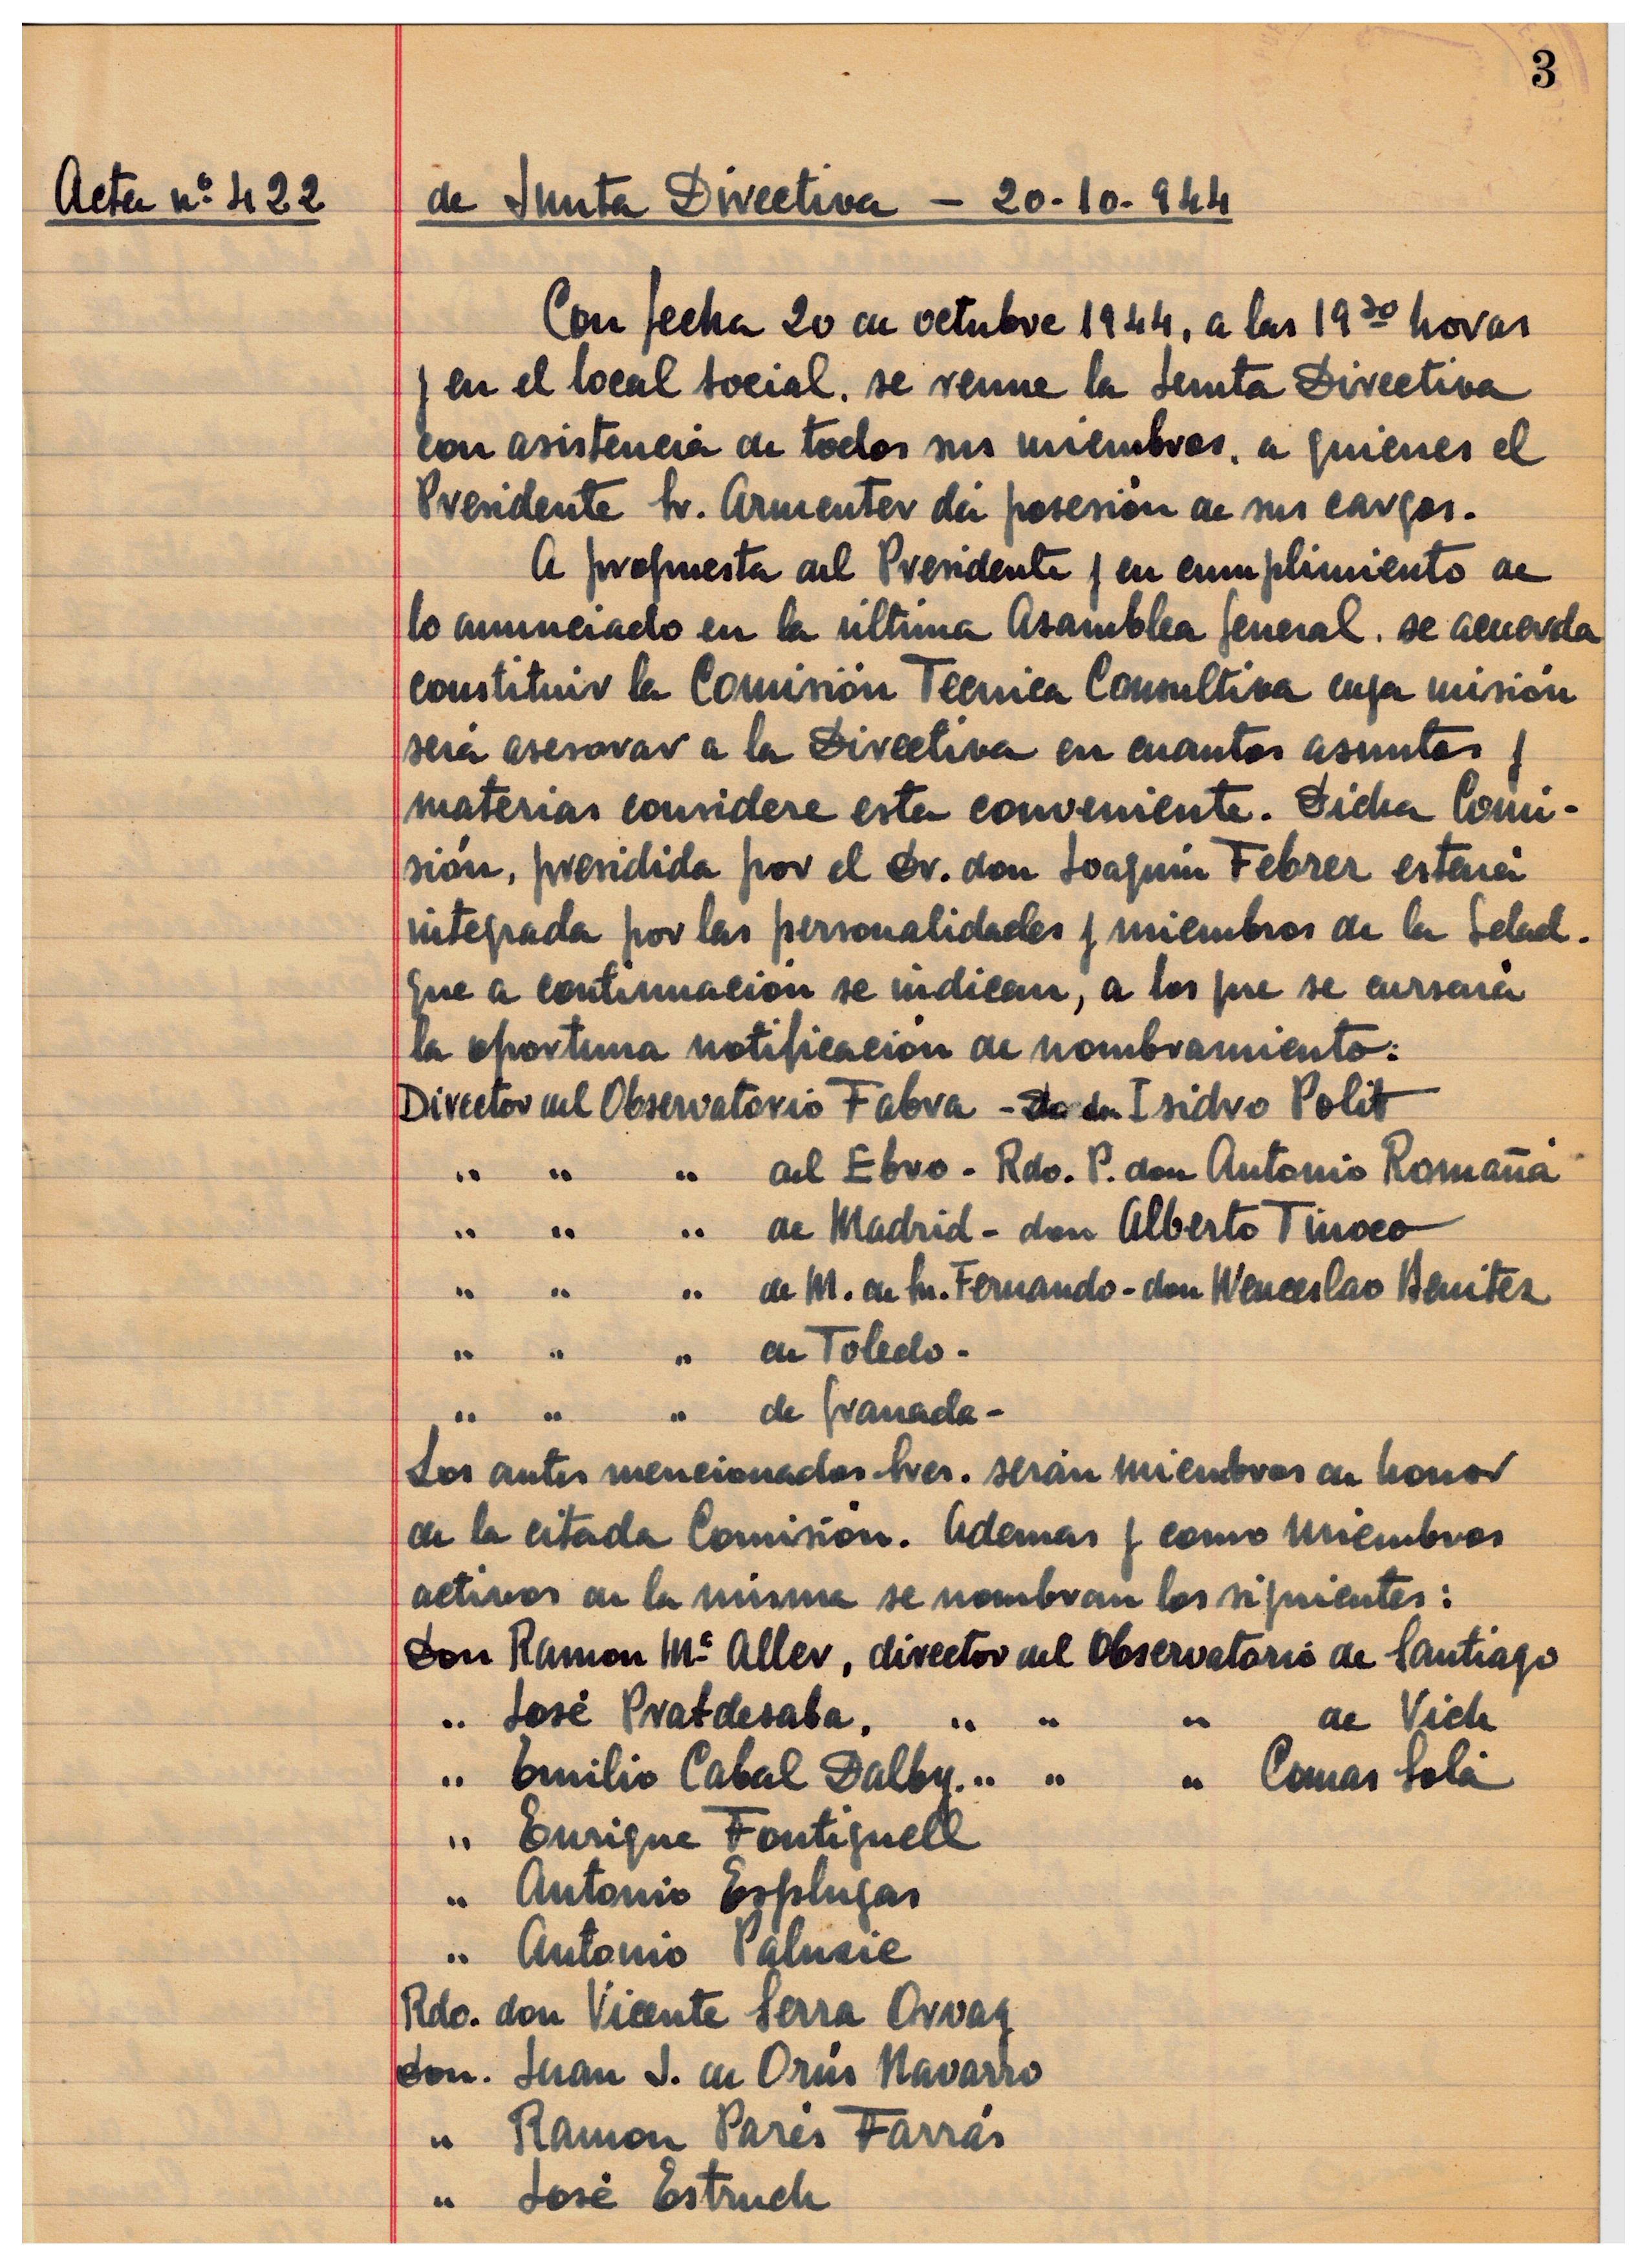 3
Acta nº 422 de Junta Directiva - 20-10-944
Con fecha 20 de octubre 1944, a las 19³⁰ horas
y en el local social, se reune la Junta Directiva
con asistencia de todos sus miembros, a quienes el
Presidente Sr. Armenter dá posesión de sus cargos.
A propuesta del Presidente y en cumplimiento de
lo anunciado en la última Asamblea General, se acuerda
constituir la Comisión Tecnica Consultiva cuya misión
será asesorar a la Directiva en cuantos asuntos y
materias considere esta conveniente. Dicha Comi-
sión, presidida por el Dr. don Joaquín Febrer estará
integrada por las personalidades y miembros de la Sdad.
que a continuación se indican, a los que se cursará
la oportuna notificación de nombramiento:
Director del Observatorio Fabra - Isidro Polit
" " " del Ebro - Rdo. P. don Antonio Romañá
" " " de Madrid - don Alberto Tinoco
" " " de M. de Sn. Fernando - don Wenceslao Benitez
" " " de Toledo -
" " " de Granada -
Los antes mencionados Sres. serán miembros de honor
de la citada Comisión. Ademas y como miembros
activos de la misma se nombran los siguientes:
Don Ramon Mª Aller, director del Observatorio de Santiago
" José Pratdesaba, " " " de Vich
" Emilio Cabal Dalby, " " " Comas Solá
" Enrique Fontiguell
" Antonio Esplugas
" Antonio Paluzie
Rdo. don Vicente Serra Orvay
don. Juan J. de Orús Navarro
" Ramon Parés Farrás
" José Estruch